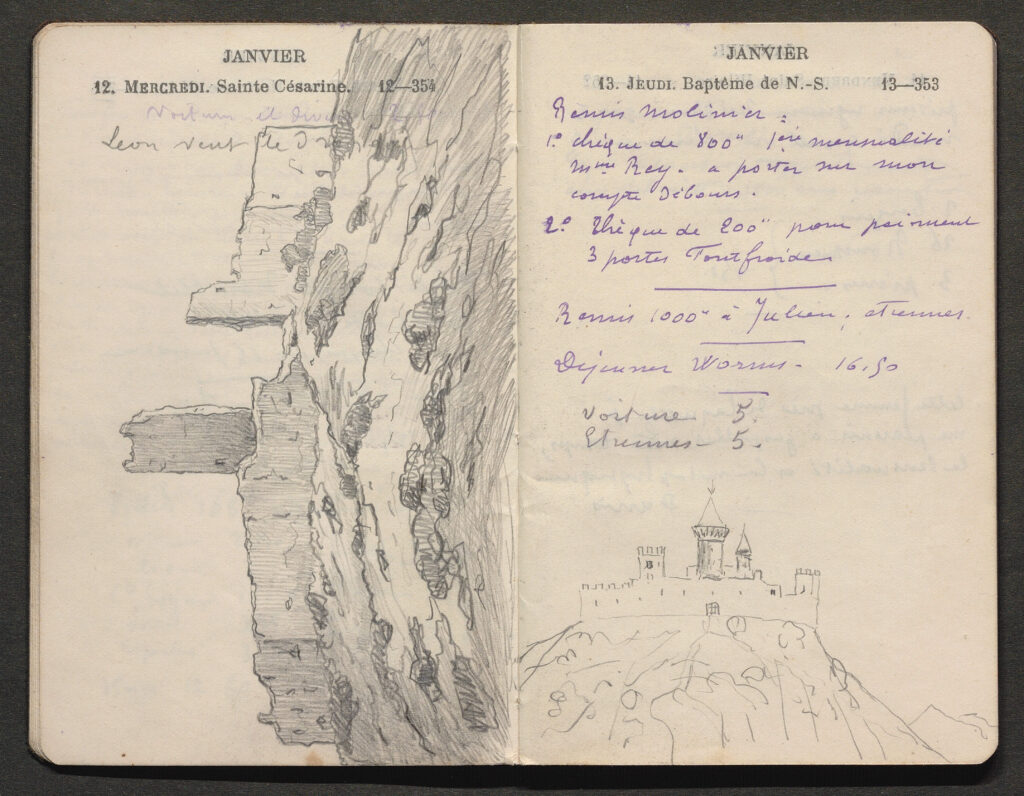 JANVIER
12. MERCREDI. Sainte Césarine. 12—354
Voiture et
Leon vent de
JANVIER
13. JEUDI. Baptême de N.-S. 13—353
Remis Molinier :
1º chèque de 800" 1ère mensualité
Mme Rey. a porter sur mon
compte Débours.
2º Chèque de 200" pour paiment
3 portes Fontfroide
Remis 1000" à Julien, etrennes.
Déjeuner Worms - 16,50
Voiture 5.
Etrennes - 5.